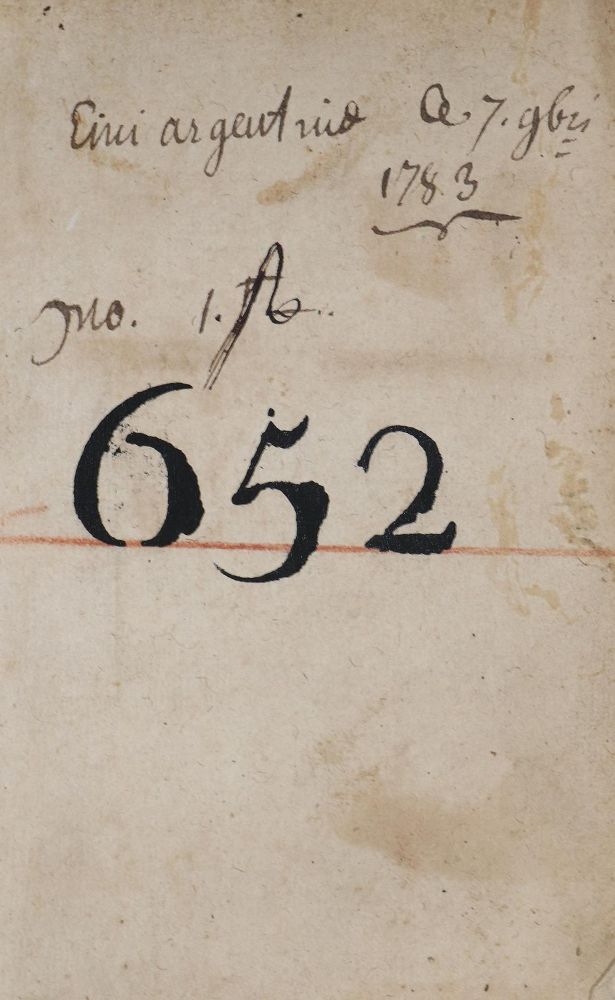 Emi argentinæ 7. 9bris
1783
pro. 1. fl
652